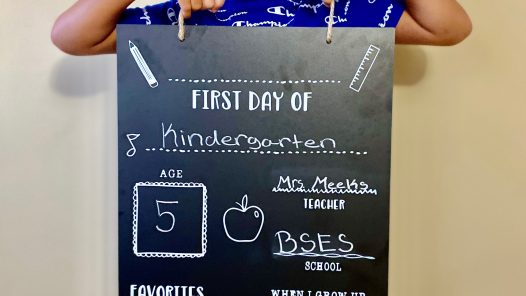 Champion
FIRST DAY OF
Kindergarten
AGE
5
Mrs Meeks
TEACHER
BSES
SCHOOL
FAVORITES
WHEN I GROW UP